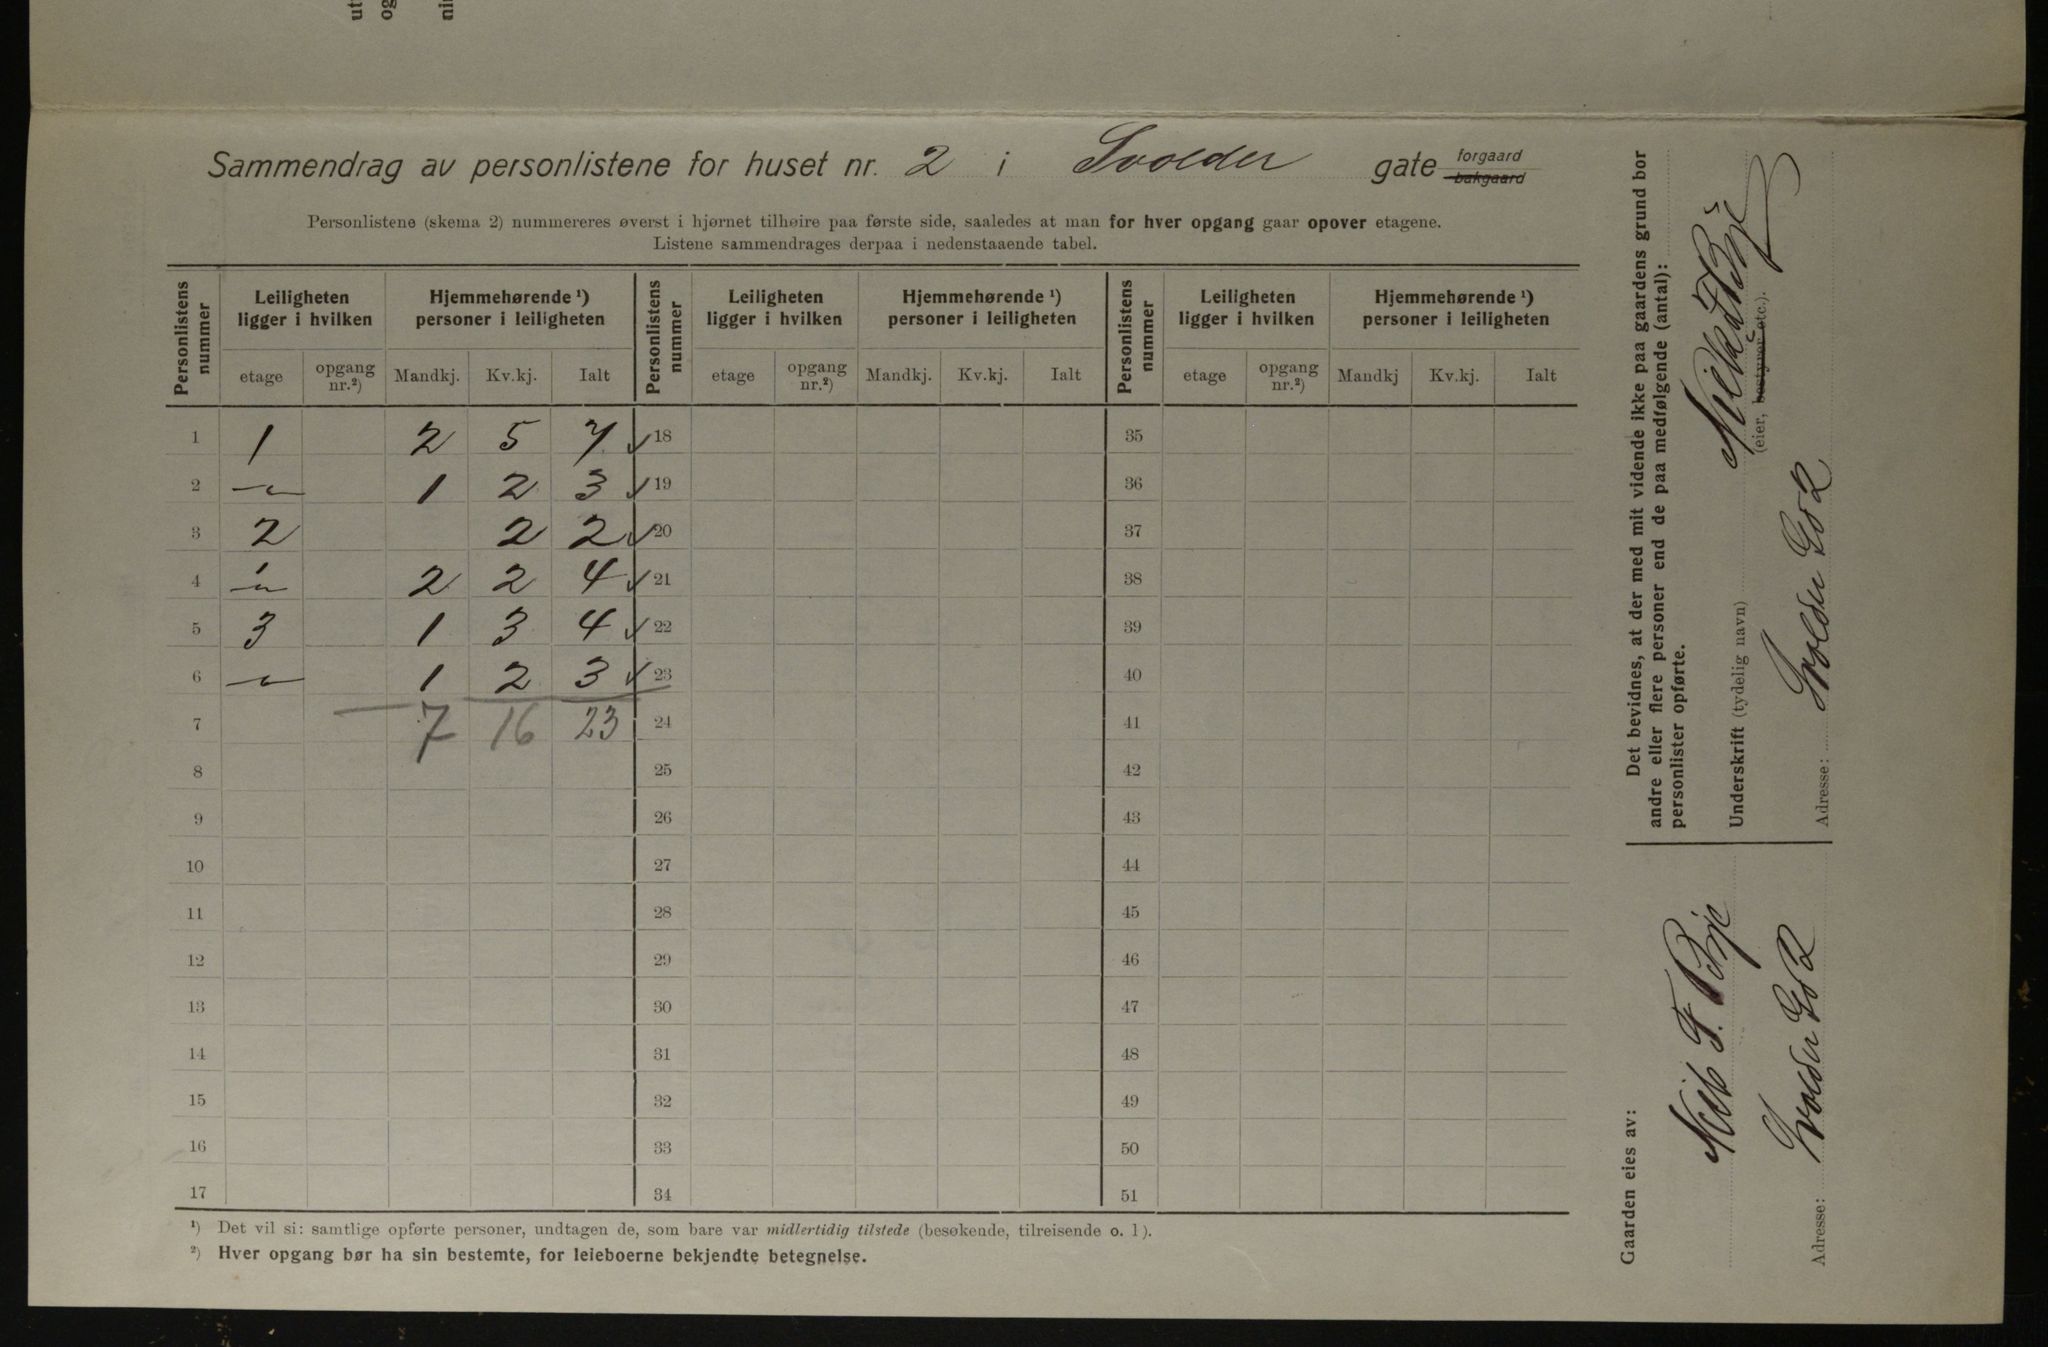 Sammendrag av personlistene for huset nr. 2 i Svolder gate forgaard bakgaard
Personlistene (skema 2) nummereres øverst i hjørnet tilhøire paa første side, saaledes at man for hver opgang gaar opover etagene.
Listene sammendrages derpaa i nedenstaaende tabel.
Personlistens nummer Leiligheten ligger i hvilken Hjemmehørende ¹) personer i leiligheten Personlistens nummer Leiligheten ligger i hvilken Hjemmehørende ¹) personer i leiligheten Personlistens nummer Leiligheten ligger i hvilken Hjemmehørende ¹) personer i leiligheten
etage opgang nr.²) Mandkj. Kv.kj. Ialt etage opgang nr.²) Mandkj. Kv.kj. Ialt etage opgang nr.²) Mandkj Kv.kj. Ialt
1 1 2 5 7 ✓ 18 35
2 —„— 1 2 3 ✓ 19 36
3 2 2 2 ✓ 20 37
4 —„— 2 2 4 ✓ 21 38
5 3 1 3 4 ✓ 22 39
6 —„— 1 2 3 ✓ 23 40
7 7 16 23 24 41
8 25 42
9 26 43
10 27 44
11 28 45
12 29 46
13 30 47
14 31 48
15 32 49
16 33 50
17 34 51
¹) Det vil si: samtlige opførte personer, undtagen de, som bare var midlertidig tilstede (besøkende, tilreisende o. l).
²) Hver opgang bør ha sin bestemte, for leieboerne bekjendte betegnelse.
Det bevidnes, at der med mit vidende ikke paa gaardens grund bor
andre eller flere personer end de paa medfølgende (antal):
personlister opførte.
Underskrift (tydelig navn)
(eier, bestyrer etc.).
Adresse: Svolder Gd 2
Gaarden eies av:
F.
Adresse: Svolder Gd 2